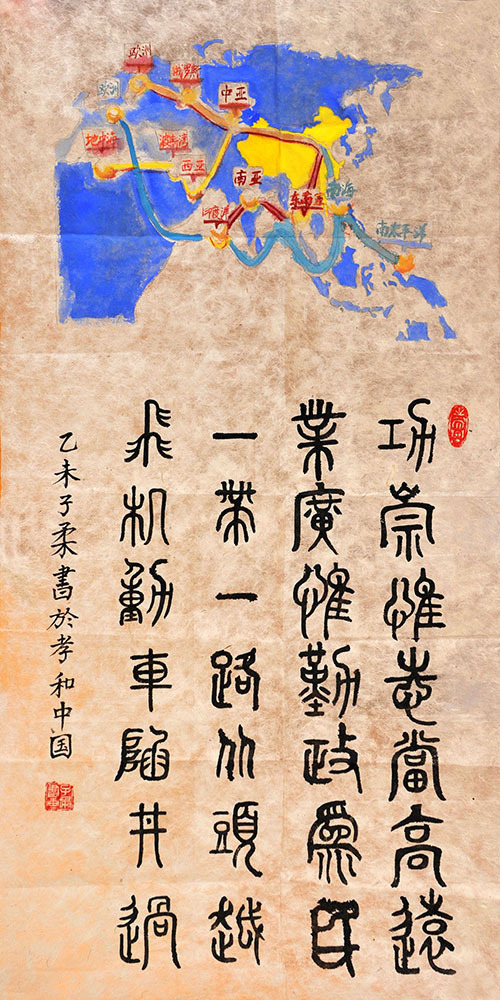 欧洲
俄罗斯
中亚
欧洲
地中海
波斯湾
西亚
南亚
印度洋
东南亚
南海
南太平洋
功崇惟志當高遠
業廣惟勤政爲民
一带一路从頭越
飛机動車陷井過
乙未子柔書於孝和中国